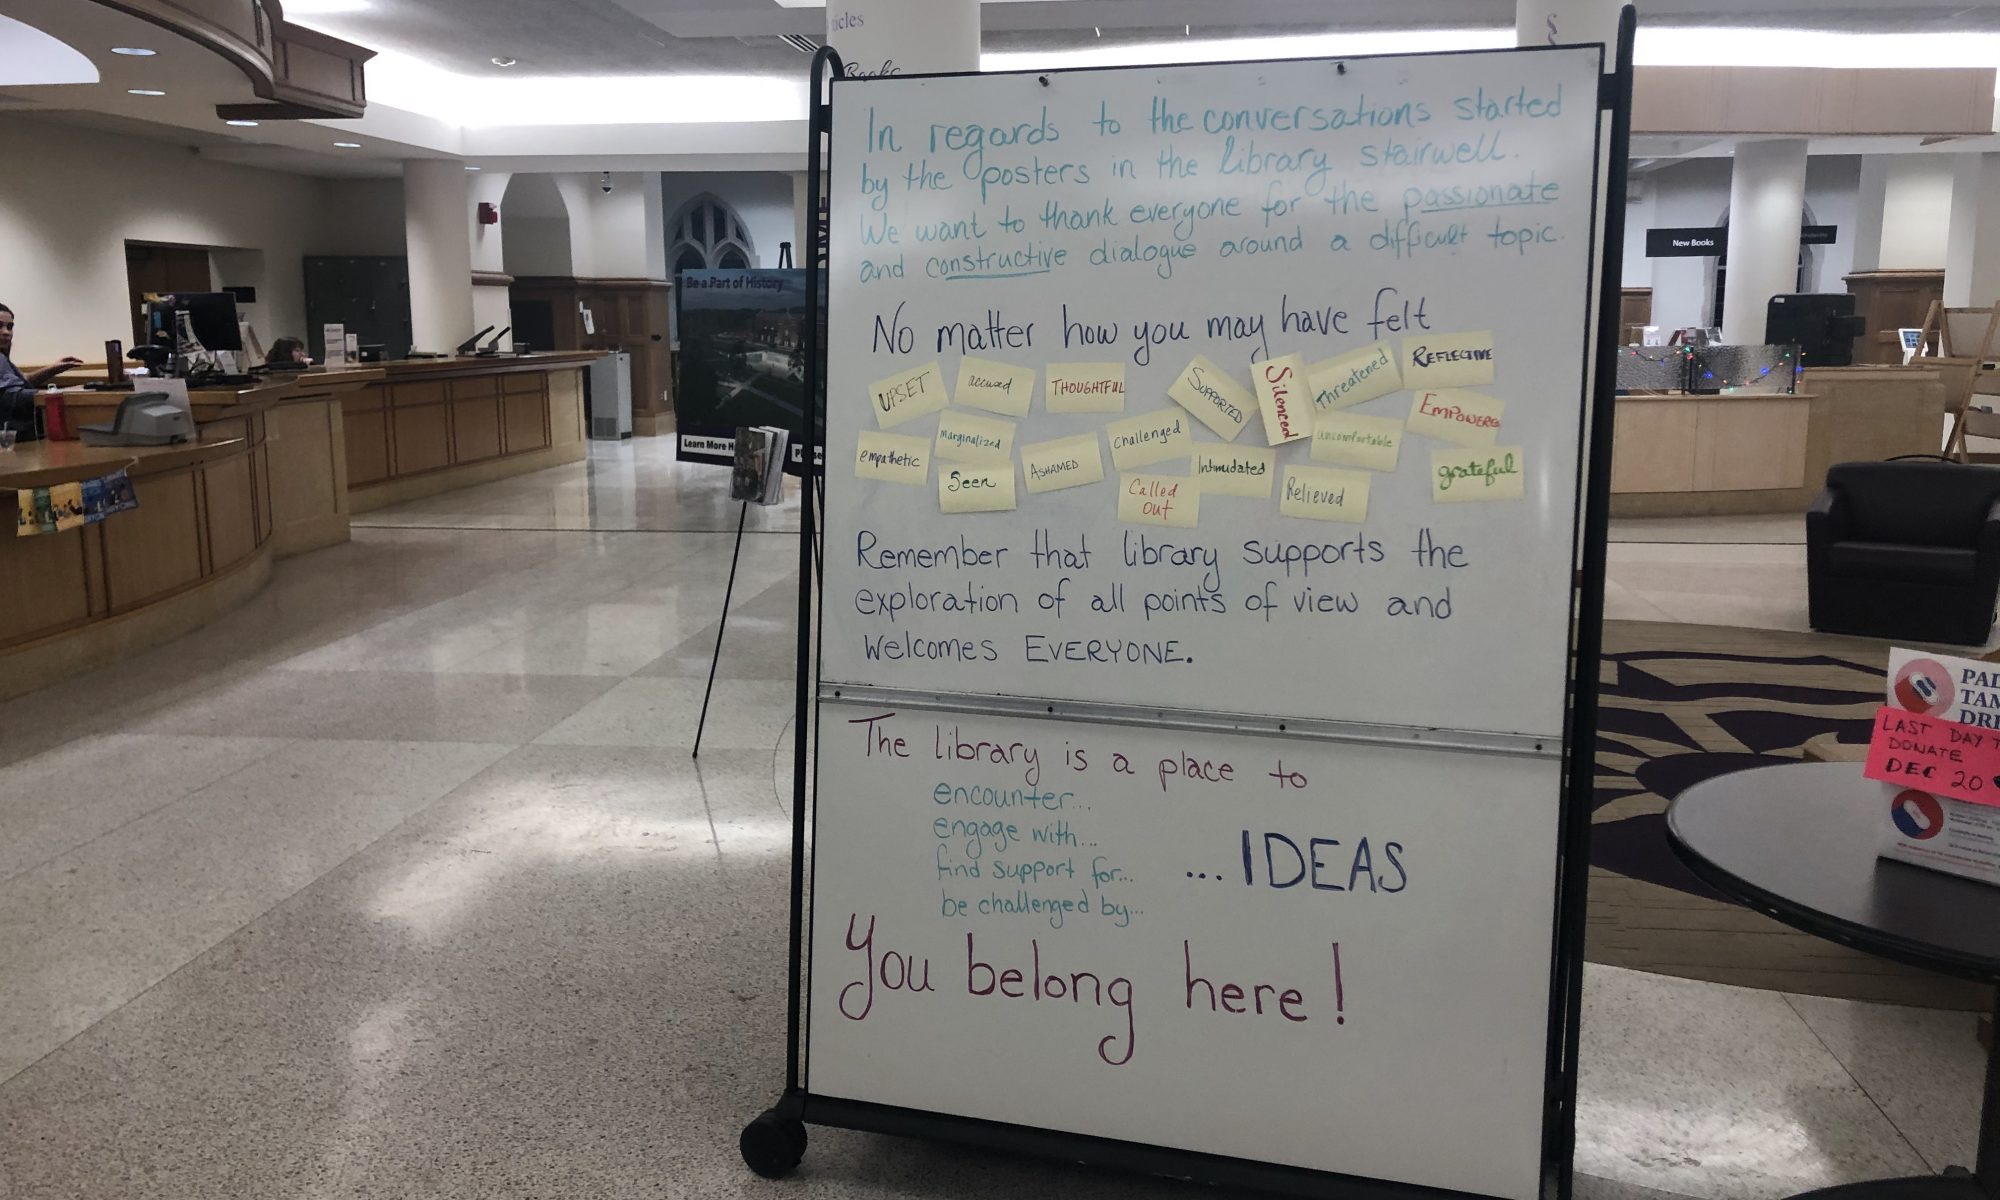 In regards to the conversations started
by the posters in the library stairwell.
We want to thank everyone for the passionate
and constructive dialogue around a difficult topic.
No matter how you may have felt
UPSET
accused
THOUGHTFUL
SUPPORTED
Silenced
Threatened
REFLECTIVE
empathetic
Marginalized
Seen
ASHAMED
Challenged
Called
Out
Intimidated
Relieved
uncomfortable
EMPOWERED
grateful
Remember that library supports the
exploration of all points of view and
Welcomes EVERYONE.
The library is a place to
encounter...
engage with...
find support for...
be challenged by...
...IDEAS
You belong here!
Be a Part of History
Learn More
Books
New Books
LAST DAY
DONATE
DEC 20